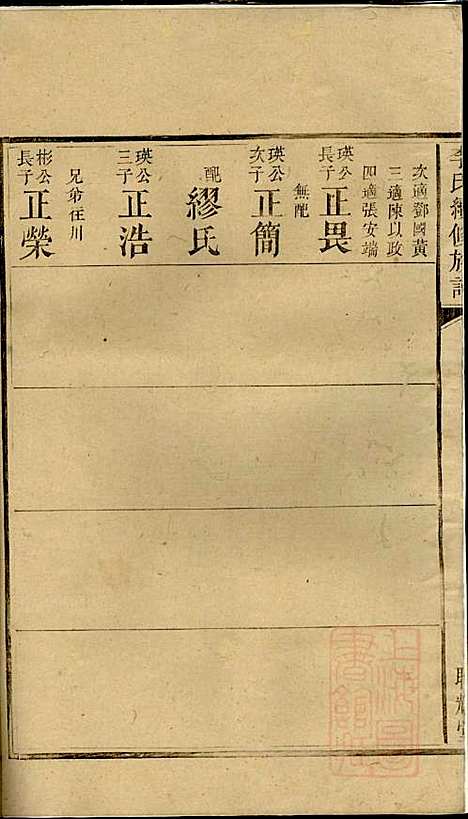 李氏續修族譜
次適鄧國黃
三適陳以政
四適張安端
瑛公長子
正畏
無配
瑛公次子
正簡
配
繆氏
瑛公三子
正浩
兄弟在川
彬公長子
正榮
上海圖書館藏